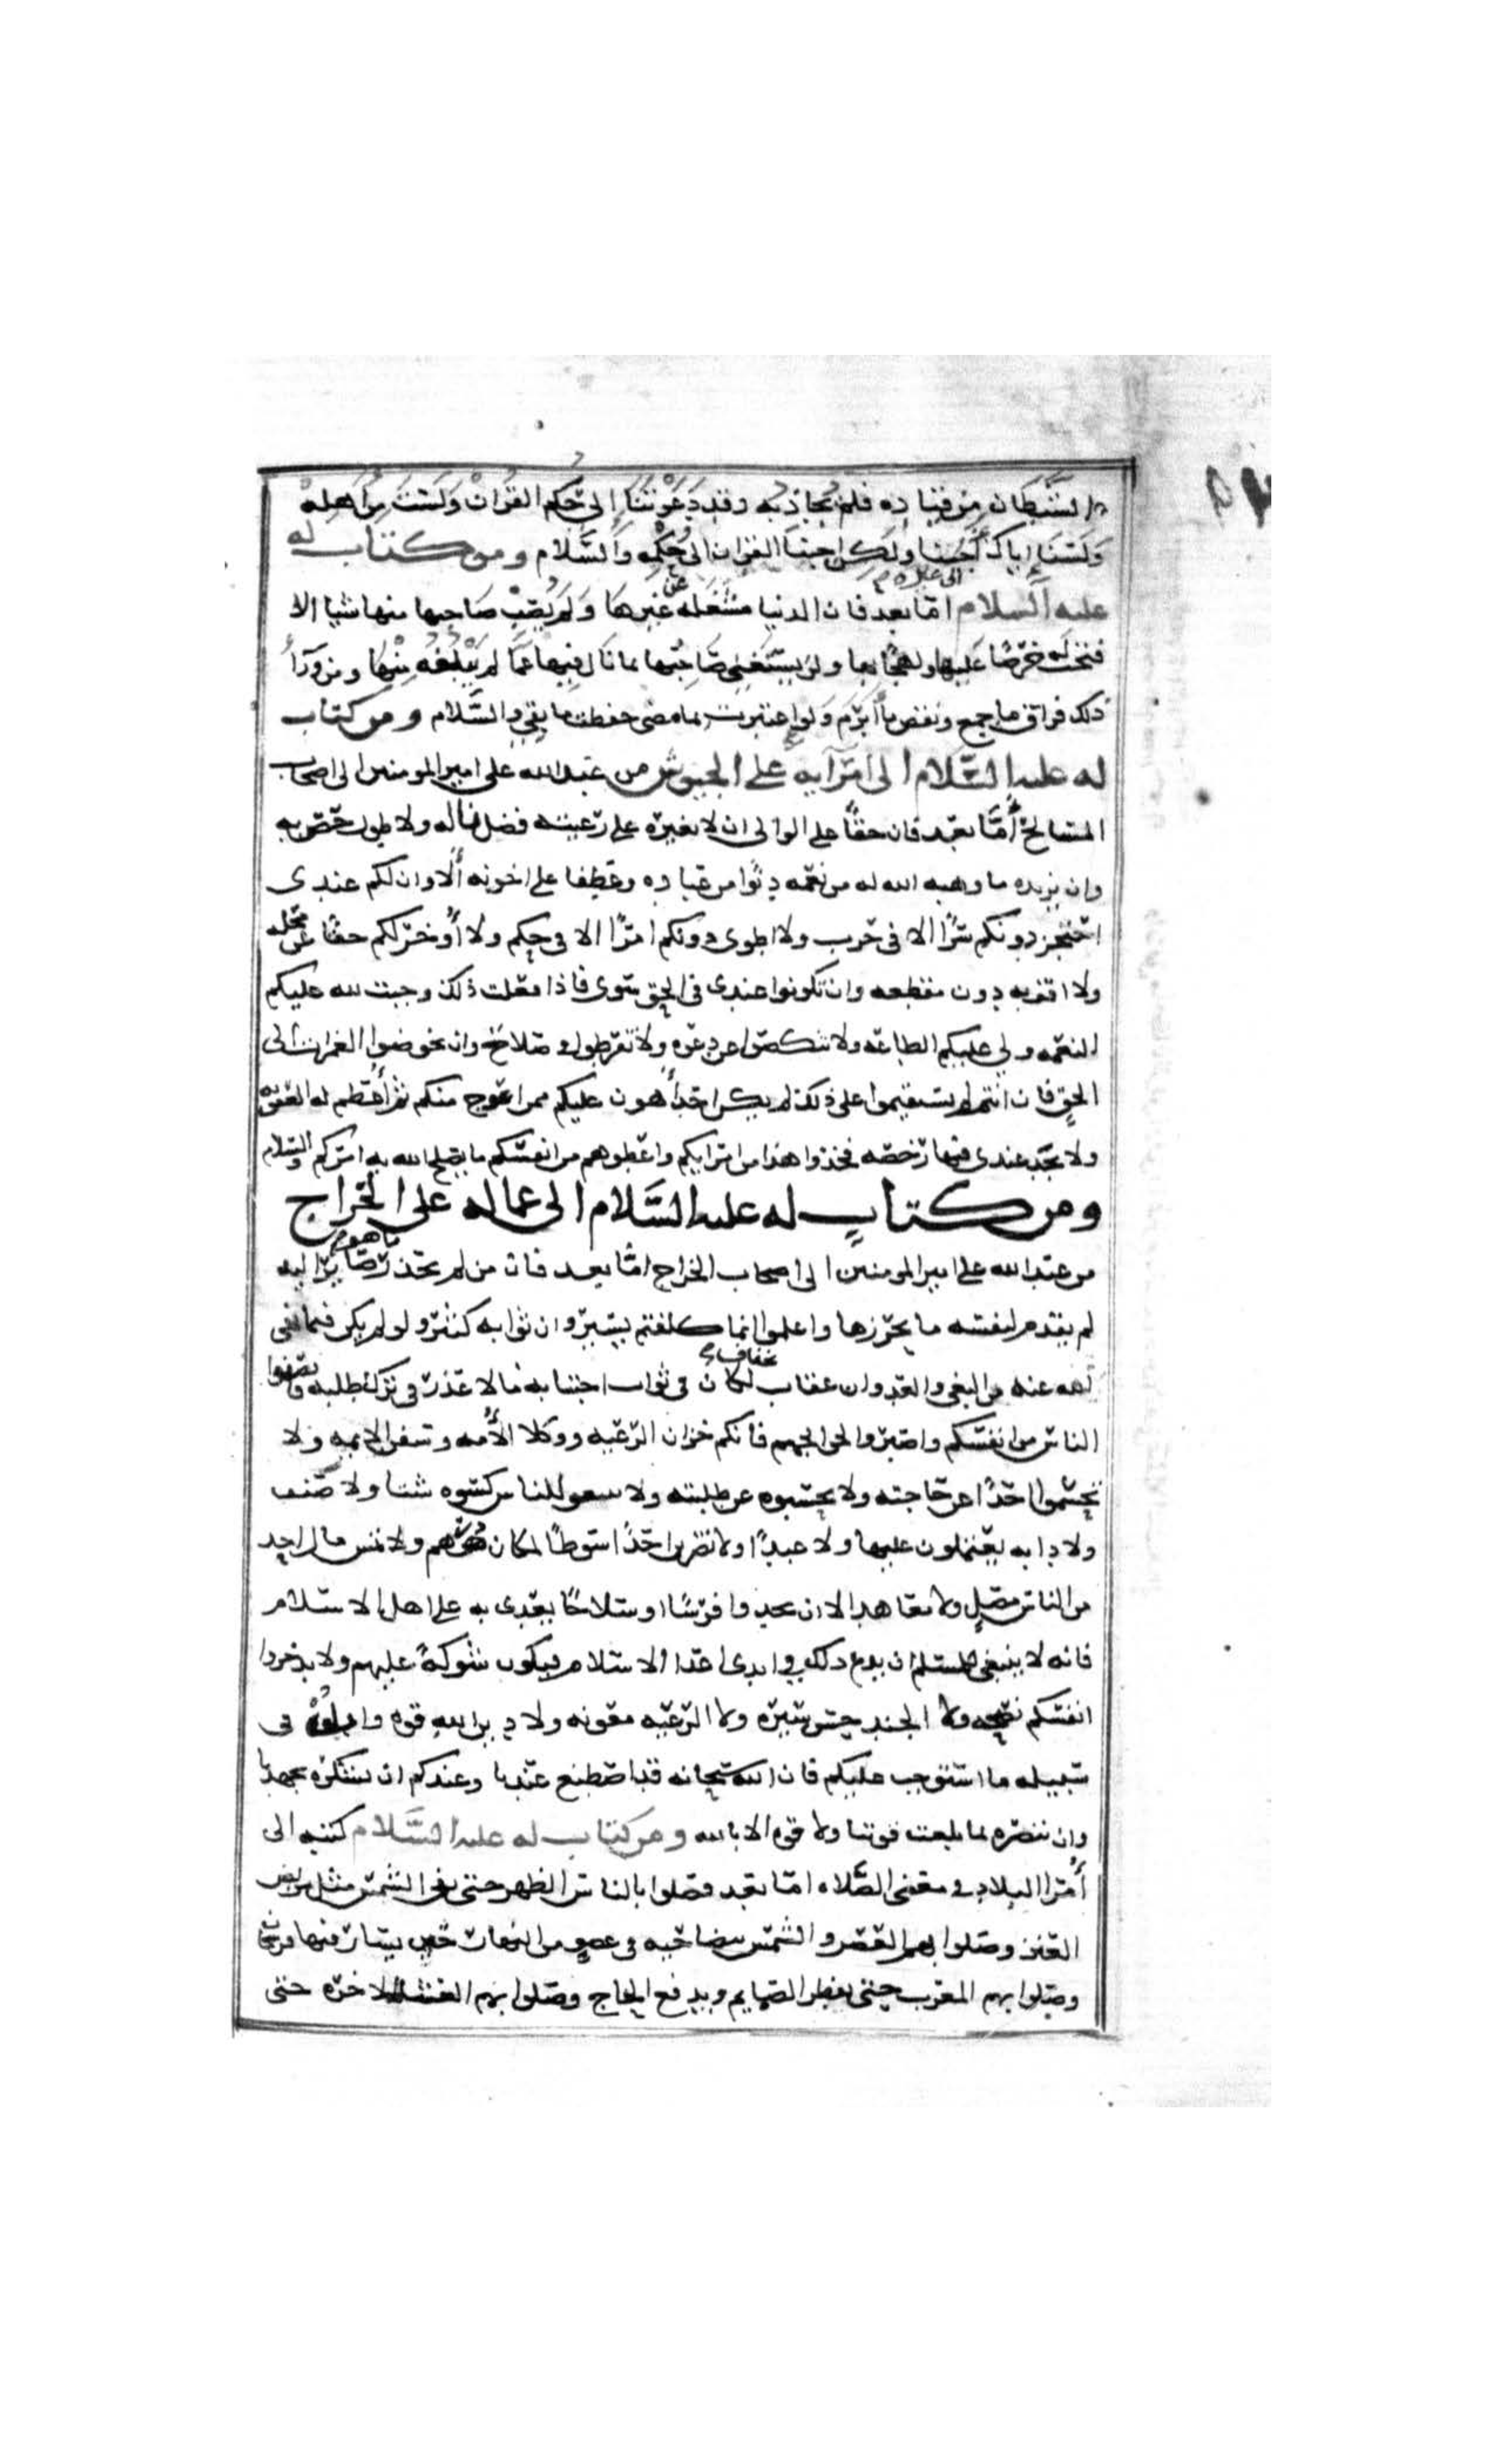 الشيطان من قياده فلم يجاذبه وقد دعوتنا إلى حكم القران ولست من اهله
ولسنا إياك أجبنا ولكن اجبنا القران الى حكمه والسَّلام ومن كتاب له
عليه السلام امّا بعد فان الدنيا مشغله عن غيرها ولم يُصِبْ صاحبها منها شيا الا
فتحت له حرصًا عليها ولهجًا بها ولن يستغني صاحبها بما نال فيها عمّا لم يبلغه منها ومن ورآ
ذلك فراق ما جمع ونقض ما أبرم ولو اعتبرت بما مضى حفظت ما بقي والسَّلام ومن كتاب
له عليه السَّلام الى امرآيه على الجيوش من عبد الله على امير المومنين الى اصحاب
المسالح أمّا بعد فان حقًا على الوالى ان لا يغيره على رعيته فضل ناله ولا طول خصّ به
وان يزيده ما وهبه الله له من نعمه دنوا من عباده وعطفا على اخونه ألا وان لكم عندى
احتجز دونكم سرًا الا فى حرب ولا اطوى دونكم امرًا الا في حكم ولا أوخر لكم حقا عن محله
ولا اقف به دون مقطعه وان تكونوا عندى فى الحق سوى فاذا فعلت ذلك وجبت لله عليكم
النعمه ولى عليكم الطاعه ولا تنكصوا عن دعوه ولا تفرطوا في صلاح وان تخوضوا الغمرات الى
الحق فان انتم لم تستقيموا على ذلك لم يكن احد أهون عليكم ممن اعوج منكم ثم أعظم له العقوبه
ولا يجد عندى فيها رخصه فخذوا هذا من امرايكم واعطوهم من انفسكم ما يصلح الله به امركم والسلام
ومن كتاب له عليه السَّلام الى عماله على الخراج
من عبد الله على امير المومنين الى اصحاب الخراج امّا بعد فان من لم يحذر ما هو صاير اليه
لم يقدم لنفسه ما يحرزها واعلموا انما كلفتم يسير وان ثوابه كثير ولو لم يكن فيما نهى
الله عنه من البغي والعدوان عقاب يخاف لكان في ثواب اجتنابه ما لا عذر في ترك طلبه فانصفوا
الناس من انفسكم واصبروا لحوايجهم فانكم خزان الرعيه ووكلا الأمه وسفرا الايمه ولا
تحسّموا احدًا عن حاجته ولا تحبسوه عن طلبته ولا تبيعوا للناس كسوه شتا ولا صيف
ولا دابه يعتملون عليها ولا عبدًا ولا تضربن احدًا سوطًا لمكان درهم ولا تمس مال احد
من الناس مصلٍ ولا معاهد الا ان تجدوا فرسًا او سلاحًا يعدى به على اهل الاسلام
فانه لا ينبغي للمسلم ان يدع ذلك في ايدى اعدا الاسلام فيكون شوكةً عليهم ولا تدخروا
انفسكم نصيحه ولا الجند حسن سيره ولا الرعيه معونه ولا دين الله قوه وابلوا في
سبيله ما استوجب عليكم فان الله سبحانه قد اصطنع عندنا وعندكم ان نشكره بجهدنا
وان ننصره بما بلغت قوتنا ولا قوه الا بالله ومن كتاب له عليه السَّلام كتبه الى
أمرا البلاد في معنى الصَّلاه امّا بعد فصلوا بالناس الظهر حتى تفى الشمس مثل مربض
العنز وصلوا بهم العصر والشمس بيضا حيه فى عضو من النهار حين يسار فيها فرسخان
وصلوا بهم المغرب حين يفطر الصايم ويدفع الحاج وصلوا بهم العشا الاخره حتى